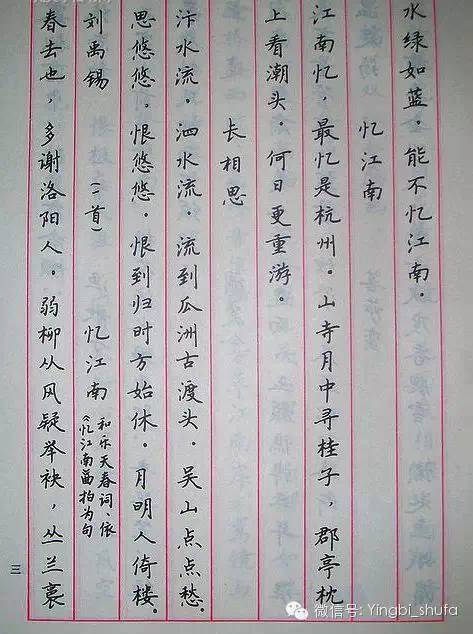 水绿如蓝。能不忆江南。
忆江南
江南忆,最忆是杭州。山寺月中寻桂子,郡亭枕
上看潮头。何日更重游。
长相思
汴水流。泗水流。流到瓜洲古渡头。吴山点点愁。
思悠悠。恨悠悠。恨到归时方始休。月明人倚楼。
刘禹锡(二首) 忆江南 和乐天春词、依《忆江南》曲拍为句
春去也,多谢洛阳人。弱柳从风疑举袂,丛兰裛
三
微信号: Yingbi_shufa